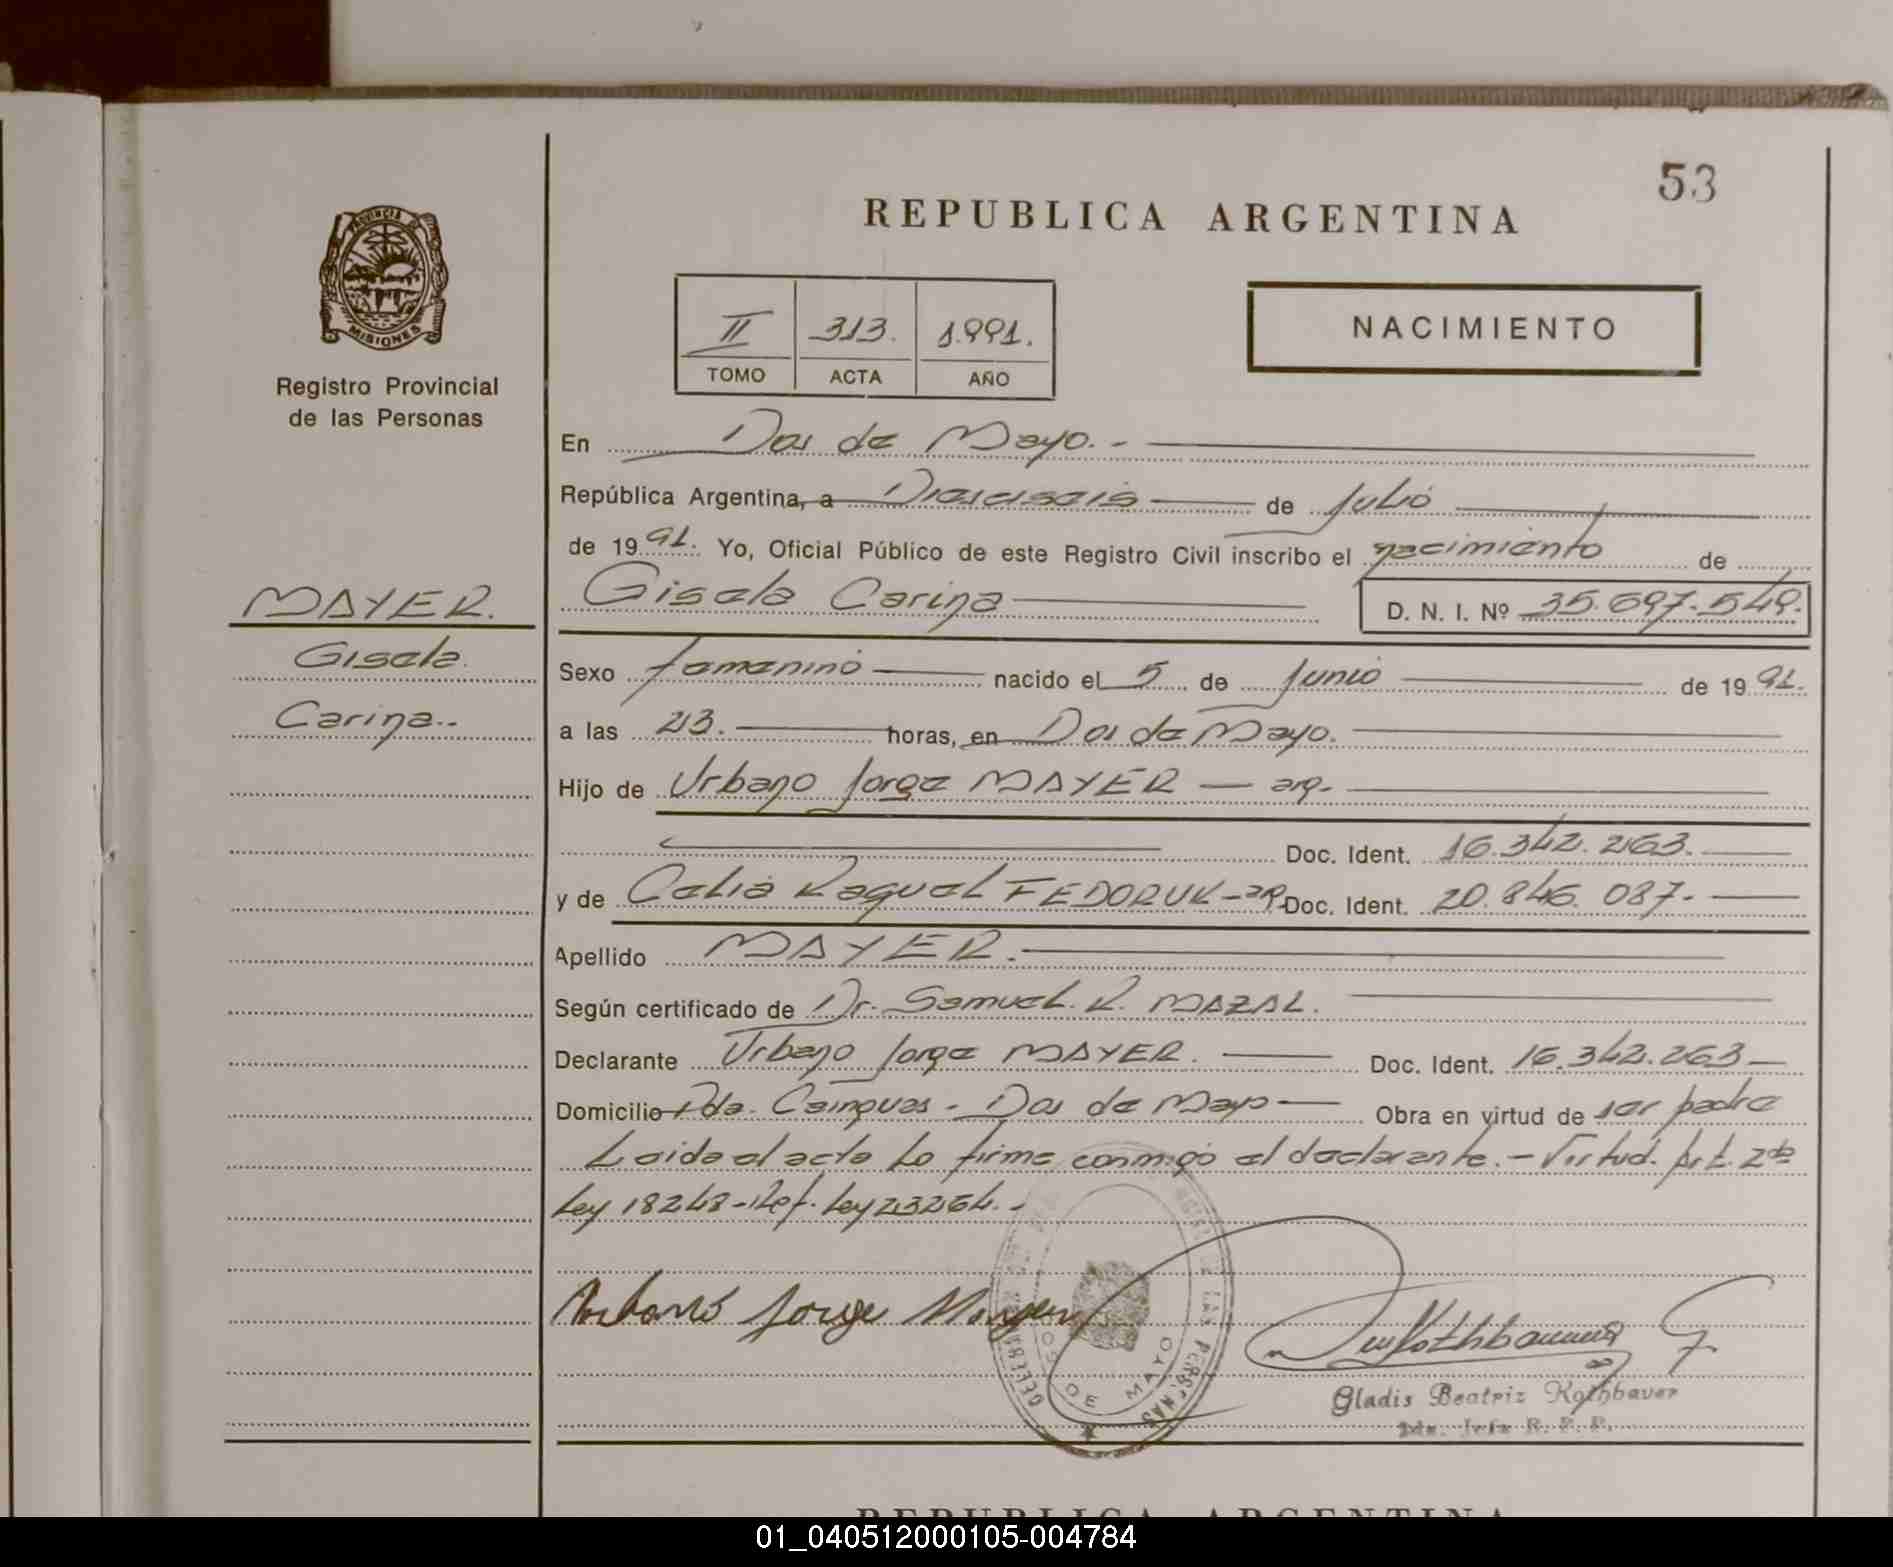 53
REPUBLICA ARGENTINA
PROVINCIA
MISIONES
Registro Provincial
de las Personas
II 313. 1.991.
TOMO ACTA AÑO
NACIMIENTO
En Dos de Mayo.-
República Argentina, a Dieciseis de Julio
de 1991. Yo, Oficial Público de este Registro Civil inscribo el nacimiento de
MAYER.
Gisela Carina D. N. I. Nº 35.697.549.
Gisela
Carina..
Sexo femenino nacido el 5 de Junio de 1991.
a las 23. horas, en Dos de Mayo.
Hijo de Urbano Jorge MAYER — arg.
Doc. Ident. 16.342.263.
y de Celia Raquel FEDORUK - ar. Doc. Ident. 20.846.087.-
Apellido MAYER.
Según certificado de Dr. Samuel. R. MAZAL.
Declarante Urbano Jorge MAYER. Doc. Ident. 16.342.263
Domicilio Pda. Cainguas - Dos de Mayo Obra en virtud de ser padre
Leida el acta la firma conmigo el declarante.- Virtud. Art. 2do
Ley 18248-Ref. Ley 23264.-
Urbano Jorge Mayer
DE LAS PERSONAS
DOS DE MAYO
Gladis Beatriz Rothbauer
R. P. P.
REPUBLICA ARGENTINA
01_040512000105-004784